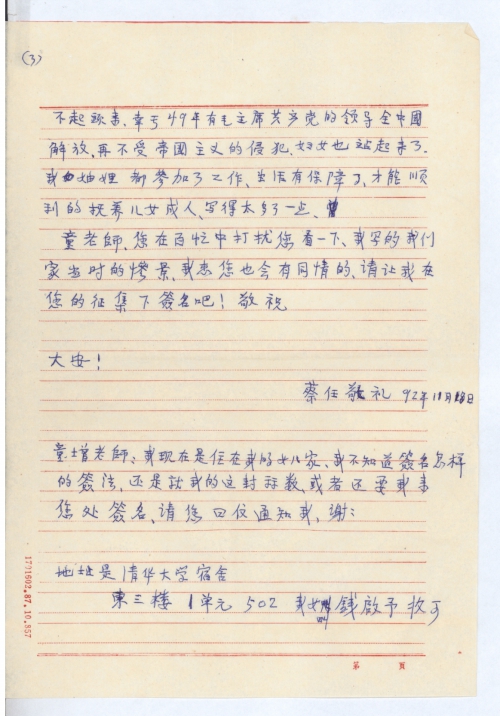 (3)
不起歌素,幸亏49年有毛主席共产党的领导全中國
解放,再不受帝國主义的侵犯,妇女也站起来了.
我妯娌都參加了工作,生活有保障了,才能顺
利的抚养儿女成人,写得太多了一点、
童老師,您在百忙中打扰您看一下、我写的我们
家当时的惨景,我想您也会有同情的,请让我在
您的征集下簽名吧!敬祝
大安!
蔡任敬礼 92年11月 日
童增老師:我现在是住在我的女儿家,我不知道簽名怎样
的簽法,还是就我的这封算数,或者还要我来
您处簽名,请您回仅通知我,谢:
地址是清华大学宿舍
東三楼 1单元 502 我女 錢啟予收可
1771602.87.10.857
第 頁